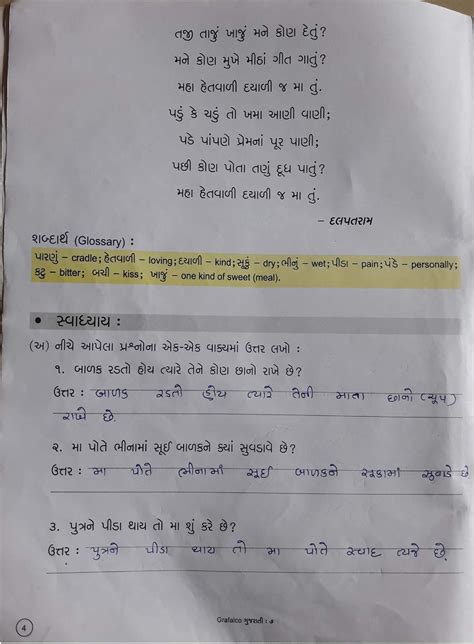 તજી તાજું ખાજું મને કોણ દેતું?
મને કોણ મુખે મીઠાં ગીત ગાતું?
મહા હેતવાળી દયાળી જ મા તું.
પડું કે ચડું તો ખમા આણી વાણી;
પડે પાંપણે પ્રેમનાં પૂર પાણી;
પછી કોણ પોતા તણું દૂધ પાતું?
મહા હેતવાળી દયાળી જ મા તું.
- દલપતરામ
શબ્દાર્થ (Glossary) :
પારણું – cradle; હેતવાળી – loving; દયાળી - kind; સૂકું - dry; ભીનું – wet; પીડા – pain; પંડે – personally;
કટુ – bitter; બચી – kiss; ખાજું – one kind of sweet (meal).
• સ્વાધ્યાય :
(અ) નીચે આપેલા પ્રશ્નોના એક-એક વાક્યમાં ઉત્તર લખો :
૧. બાળક રડતો હોય ત્યારે તેને કોણ છાનો રાખે છે?
ઉત્તર : બાળક રડતો હોય ત્યારે તેની માતા છાનો (ચૂપ)
રાખે છે.
૨. મા પોતે ભીનામાં સૂઈ બાળકને ક્યાં સુવડાવે છે?
ઉત્તર : મા પોતે ભીનામાં સૂઈ બાળકને સૂકામાં સુવાડે છે
૩. પુત્રને પીડા થાય તો મા શું કરે છે?
ઉત્તર : પુત્રને પીડા થાય તો મા પોતે સ્વાદ ત્યજે છે.
Grafalco ગુજરાતી : ૭
4